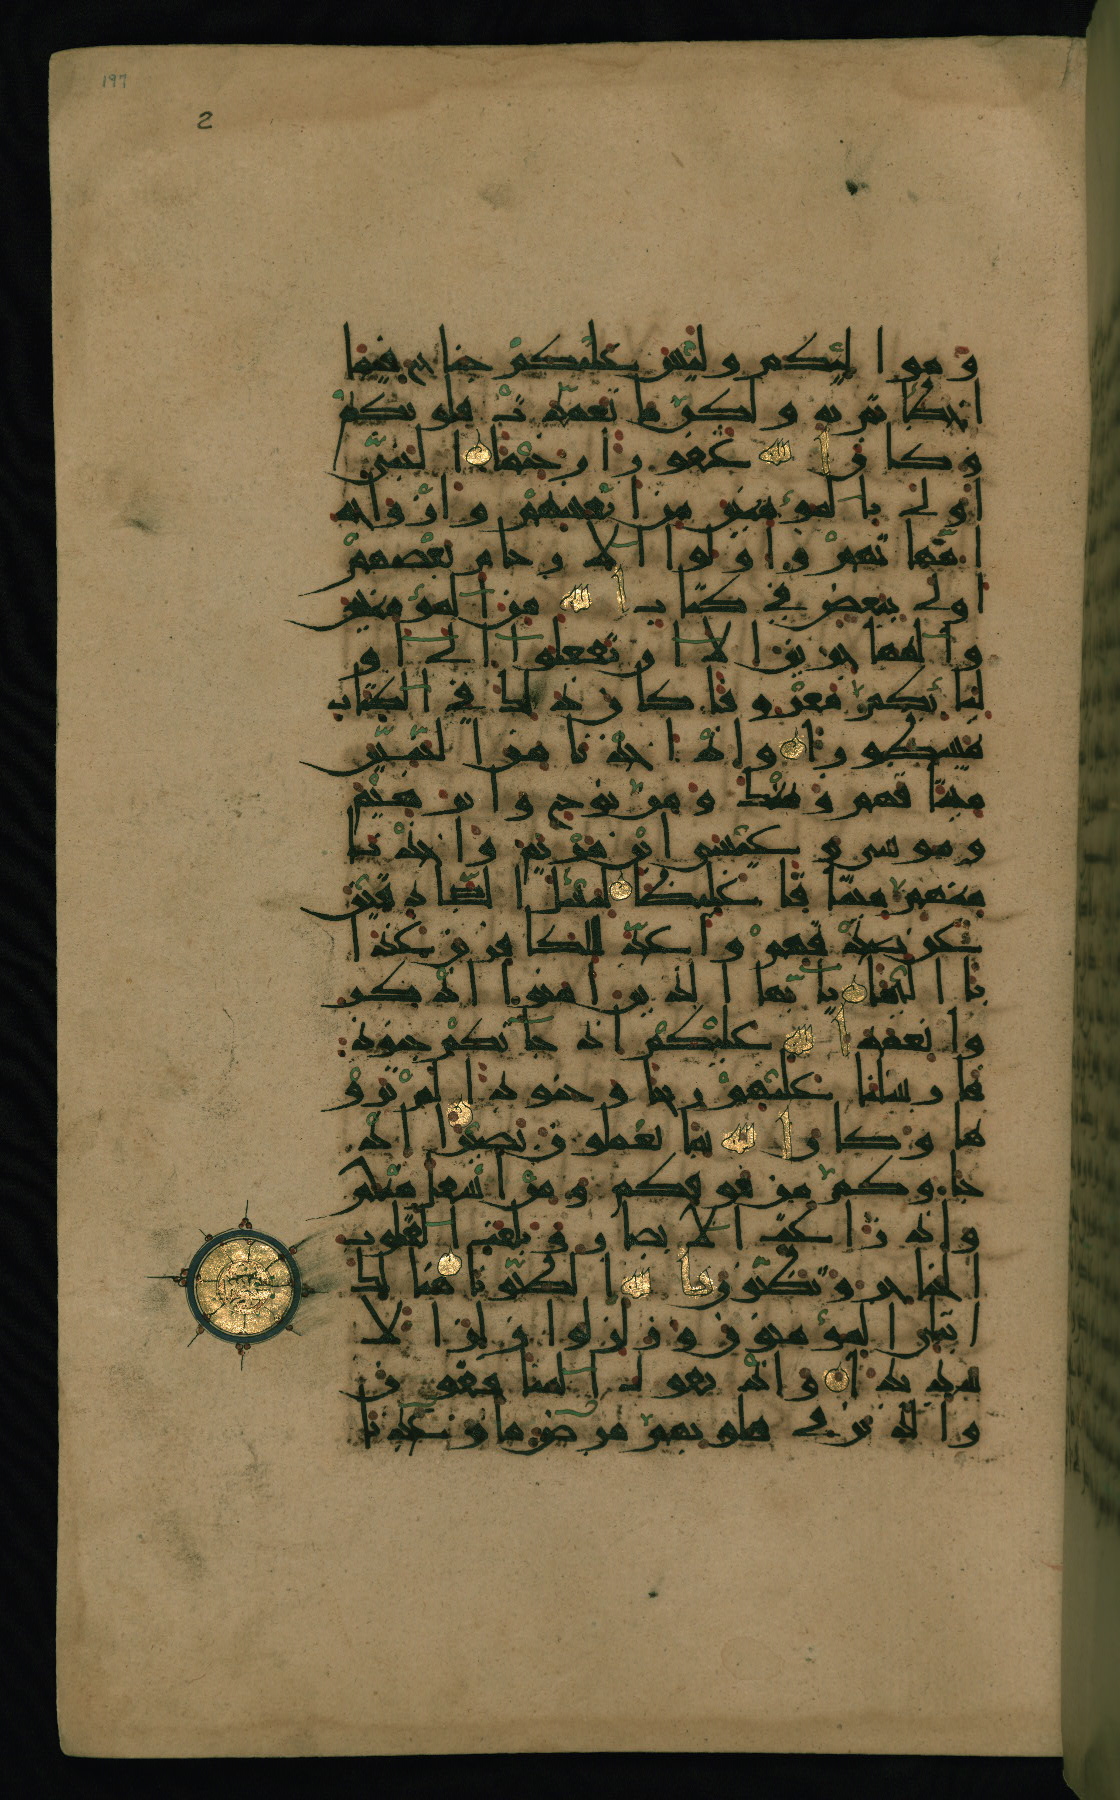 197
2
ومواليكم وليس عليكم جناح فيما
اخطأتم به ولكن ما تعمدت قلوبكم
وكان الله غفورا رحيما النبي
اولى بالمؤمنين من انفسهم وازواجه
امهاتهم واولوا الارحام بعضهم
اولى ببعض في كتاب الله من المؤمنين
والمهاجرين الا ان تفعلوا الى او
ليائكم معروفا كان ذلك في الكتاب
مسطورا واذ اخذنا من النبيين
ميثاقهم ومنك ومن نوح وابرهيم
وموسى وعيسى ابن مريم واخذنا
منهم ميثاقا غليظا ليسئل الصادقين
عن صدقهم واعد للكافرين عذا
با اليما يايها الذين امنوا اذكر
وا نعمة الله عليكم اذ جاتكم جنود
فارسلنا عليهم ريحا وجنودا لم ترو
ها وكان الله بما تعملون بصيرا اذ
جاوكم من فوقكم ومن اسفل منكم
واذ زاغت الابصار وبلغت القلوب
الحناجر وتظنون بالله الظنونا هنالك
ابتلي المؤمنون وزلزلوا زلزالا
شديدا واذ يقول المنافقون
والذين في قلوبهم مرض ما وعدنا